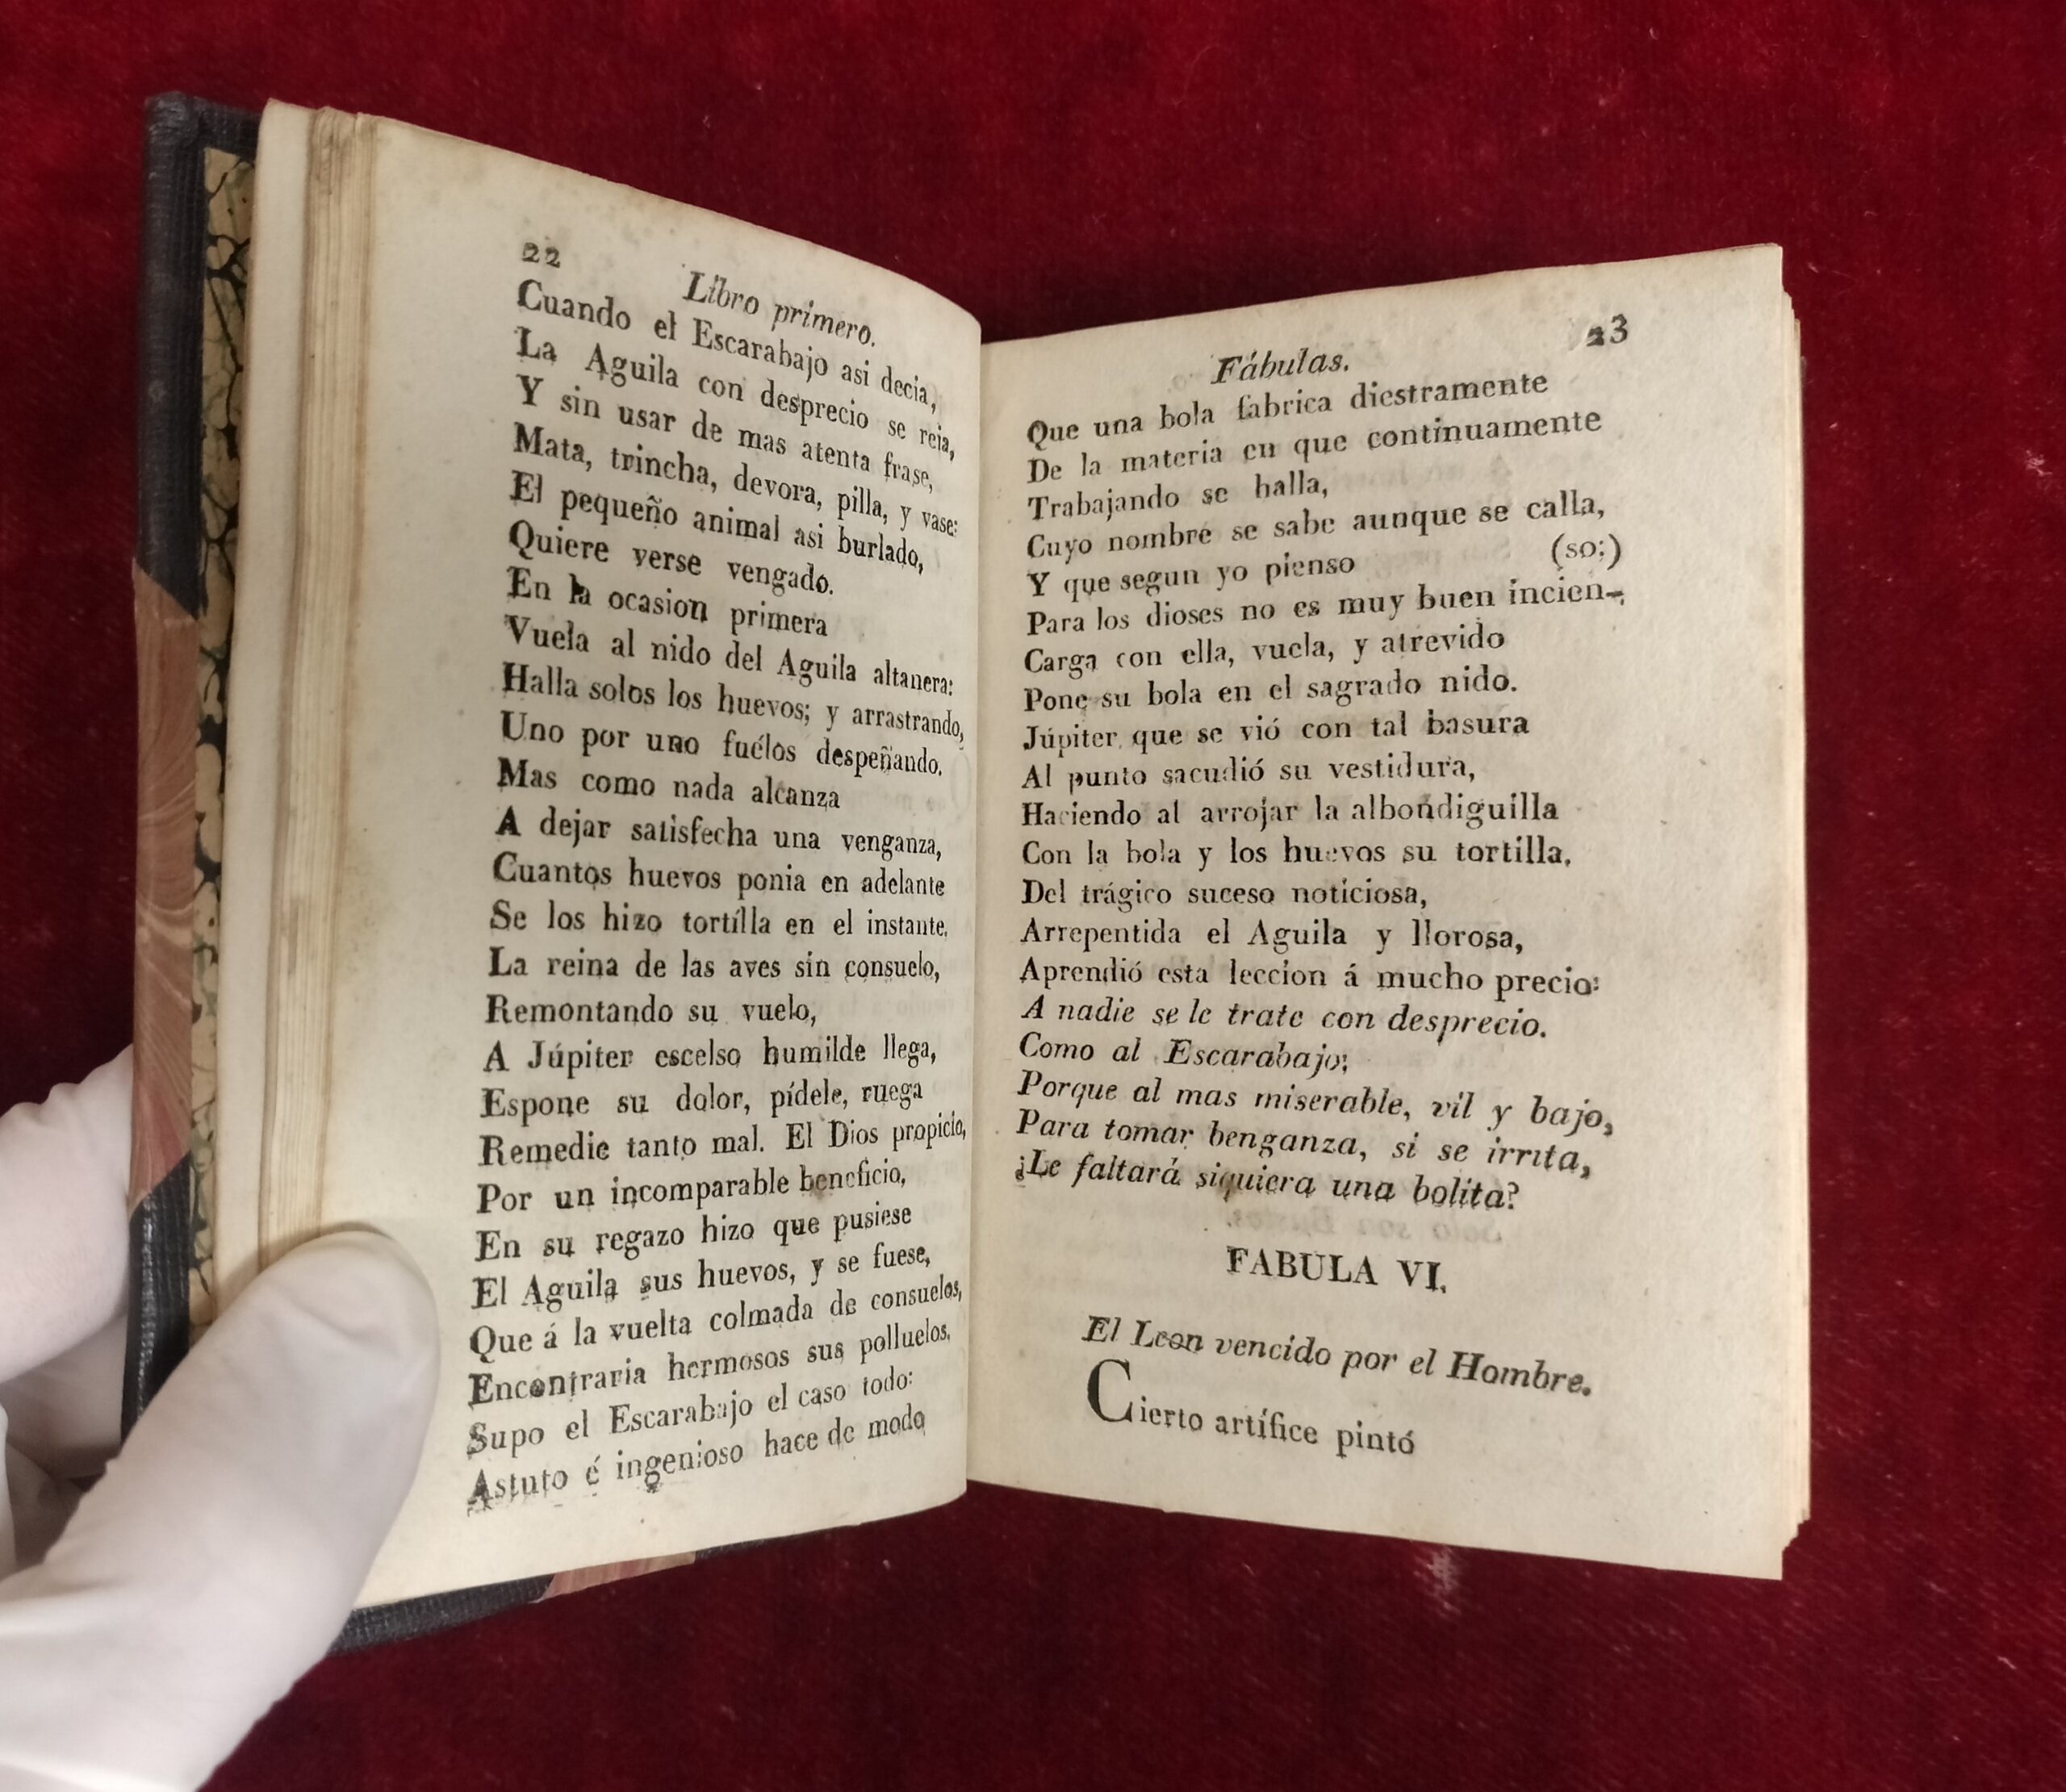 22
Libro primero.
Cuando el Escarabajo asi decia,
La Aguila con desprecio se reia,
Y sin usar de mas atenta frase,
Mata, trincha, devora, pilla, y vase:
El pequeño animal asi burlado,
Quiere verse vengado.
En la ocasion primera
Vuela al nido del Aguila altanera:
Halla solos los huevos; y arrastrando,
Uno por uno fuélos despeñando.
Mas como nada alcanza
A dejar satisfecha una venganza,
Cuantos huevos ponia en adelante
Se los hizo tortilla en el instante.
La reina de las aves sin consuelo,
Remontando su vuelo,
A Júpiter escelso humilde llega,
Espone su dolor, pídele, ruega
Remedie tanto mal. El Dios propicio,
Por un incomparable beneficio,
En su regazo hizo que pusiese
El Aguila sus huevos, y se fuese,
Que á la vuelta colmada de consuelos,
Encontraria hermosos sus polluelos.
Supo el Escarabajo el caso todo:
Astuto é ingenioso hace de modo
23
Fábulas.
Que una bola fabrica diestramente
De la materia en que continuamente
Trabajando se halla,
Cuyo nombre se sabe aunque se calla,
Y que segun yo pienso (so:)
Para los dioses no es muy buen incien-
Carga con ella, vuela, y atrevido
Pone su bola en el sagrado nido.
Júpiter que se vió con tal basura
Al punto sacudió su vestidura,
Haciendo al arrojar la albondiguilla
Con la bola y los huevos su tortilla.
Del trágico suceso noticiosa,
Arrepentida el Aguila y llorosa,
Aprendió esta leccion á mucho precio:
A nadie se le trate con desprecio.
Como al Escarabajo;
Porque al mas miserable, vil y bajo,
Para tomar benganza, si se irrita,
¿Le faltará siquiera una bolita?
FABULA VI.
El Leon vencido por el Hombre.
Cierto artífice pintó